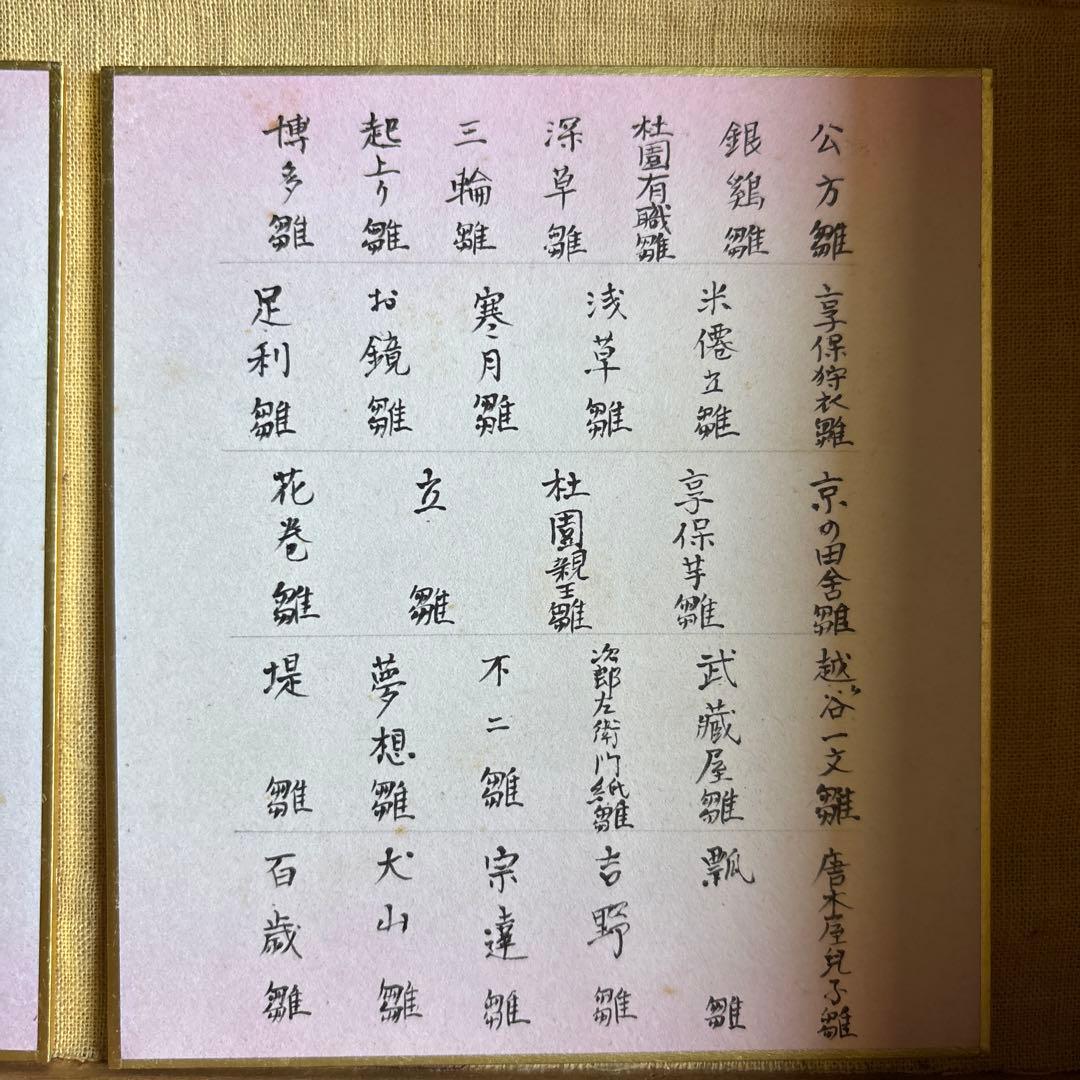 公方雛
銀鶏雛
杜園有職雛
深草雛
三輪雛
起上り雛
博多雛
享保狩衣雛
米僊立雛
浅草雛
寒月雛
お鏡雛
足利雛
京の田舎雛
享保芋雛
杜園親王雛
立雛
花巻雛
越ヶ谷一文雛
武蔵屋雛
次郎左衛門紙雛
不二雛
夢想雛
堤雛
唐木屋兒子雛
瓢雛
吉野雛
宗達雛
犬山雛
百歳雛